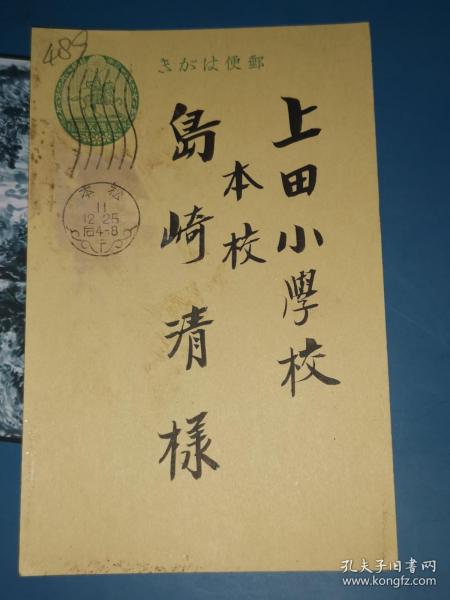 489
きがは便郵
上田小學校
本校
島崎清様
本松
11
12.25
后4-8
孔夫子旧书网
www.kongfz.com